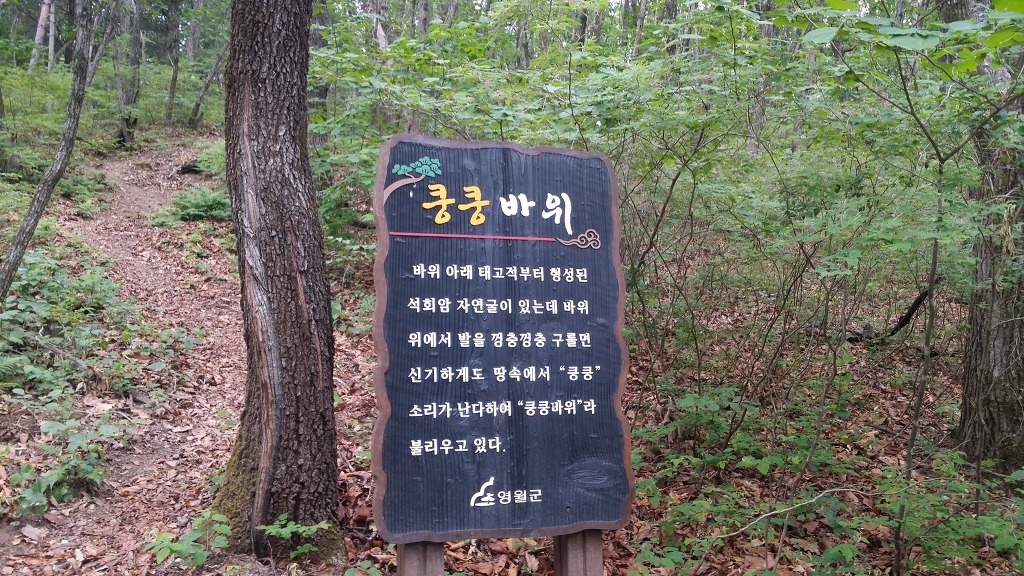 쿵쿵바위
바위 아래 태고적부터 형성된
석회암 자연굴이 있는데 바위
위에서 발을 껑충껑충 구를면
신기하게도 땅속에서 “쿵쿵”
소리가 난다하여 “쿵쿵바위”라
불리우고 있다.
영월군